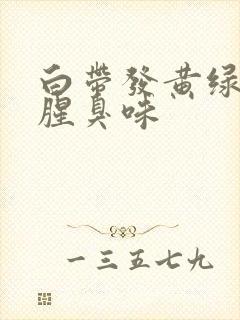 白帶發黄绿
腥臭味
一三五七九